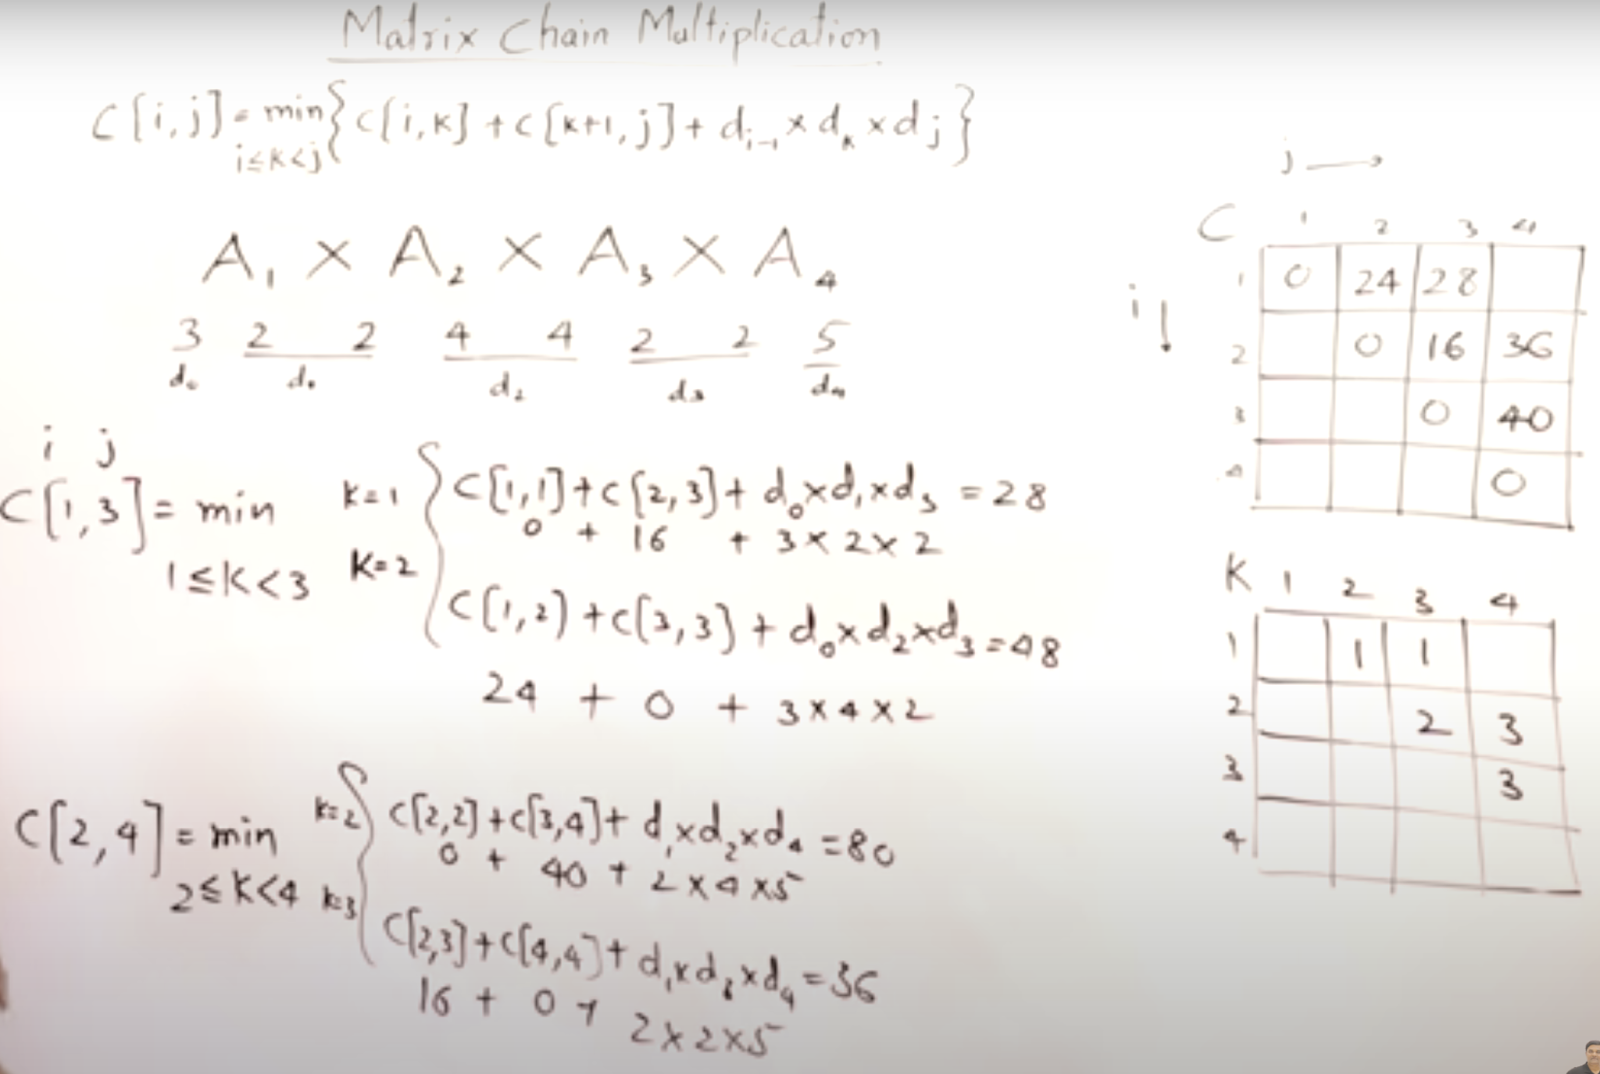 Matrix Chain Multiplication
C[i,j] = min { C[i,k] + C[k+1,j] + dᵢ₋₁ × dₖ × dⱼ }
i≤k<j
A₁ × A₂ × A₃ × A₄
3 2 2 4 4 2 2 5
d₀ d₁ d₂ d₃ d₄
i j
C[1,3] = min
1≤K<3
K=1 C[1,1] + C[2,3] + d₀×d₁×d₃ = 28
0 + 16 + 3×2×2
K=2 C(1,2) + C(3,3) + d₀×d₂×d₃ = 48
24 + 0 + 3×4×2
C[2,4] = min
2≤K<4
K=2 C[2,2] + C[3,4] + d₁×d₂×d₄ = 80
0 + 40 + 2×4×5
K=3 C[2,3] + C[4,4] + d₁×d₃×d₄ = 36
16 + 0 + 2×2×5
j →
i ↓
C 1 2 3 4
1 0 24 28
2 0 16 36
3 0 40
4 0
K 1 2 3 4
1 1 1
2 2 3
3 3
4